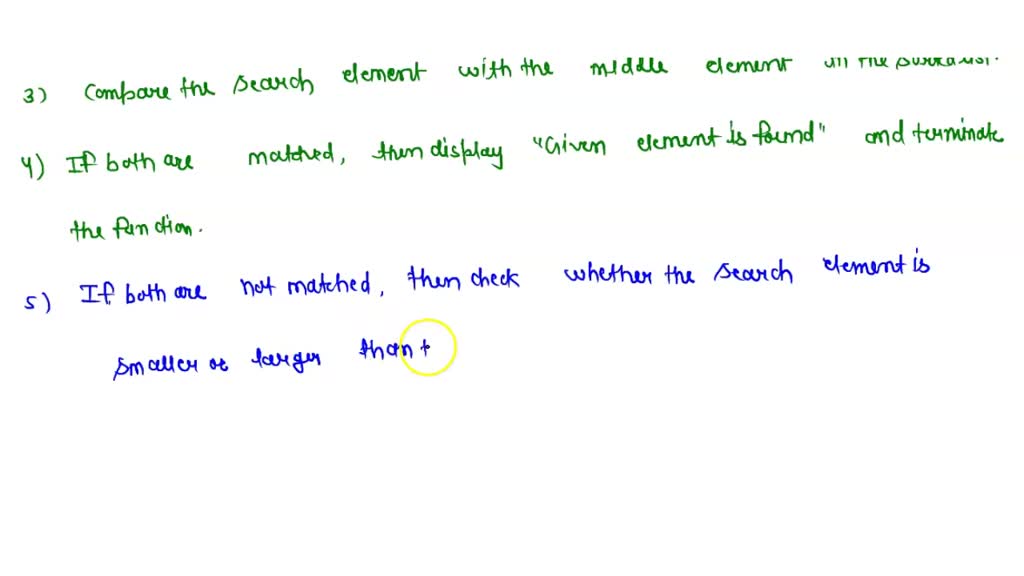 3) Compare the search element with the middle element in the sorted list.
4) If both are matched, then display "Given element is found" and terminate
the function.
5) If both are not matched, then check whether the search element is
smaller or larger than t